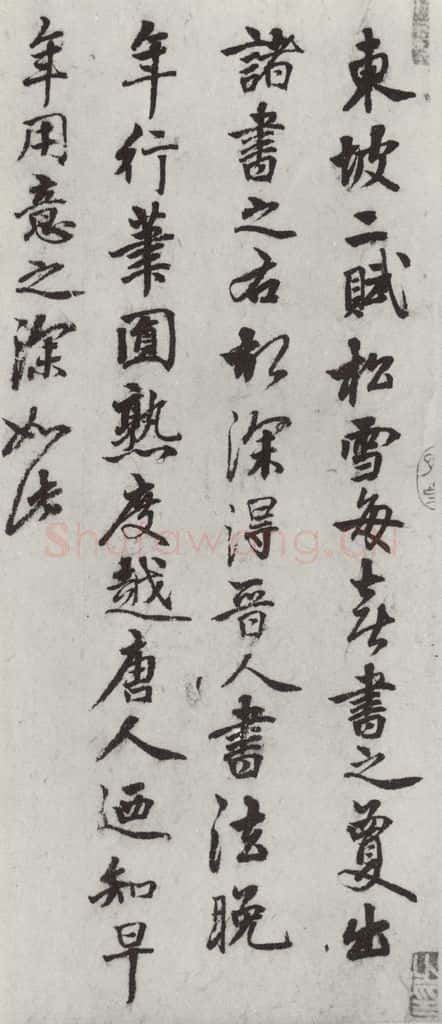 東坡二賦松雪每喜書之夐出
諸書之右初深得晉人書法晚
年行筆圓熟度越唐人迺知早
年用意之深如此
Shufawang.cn